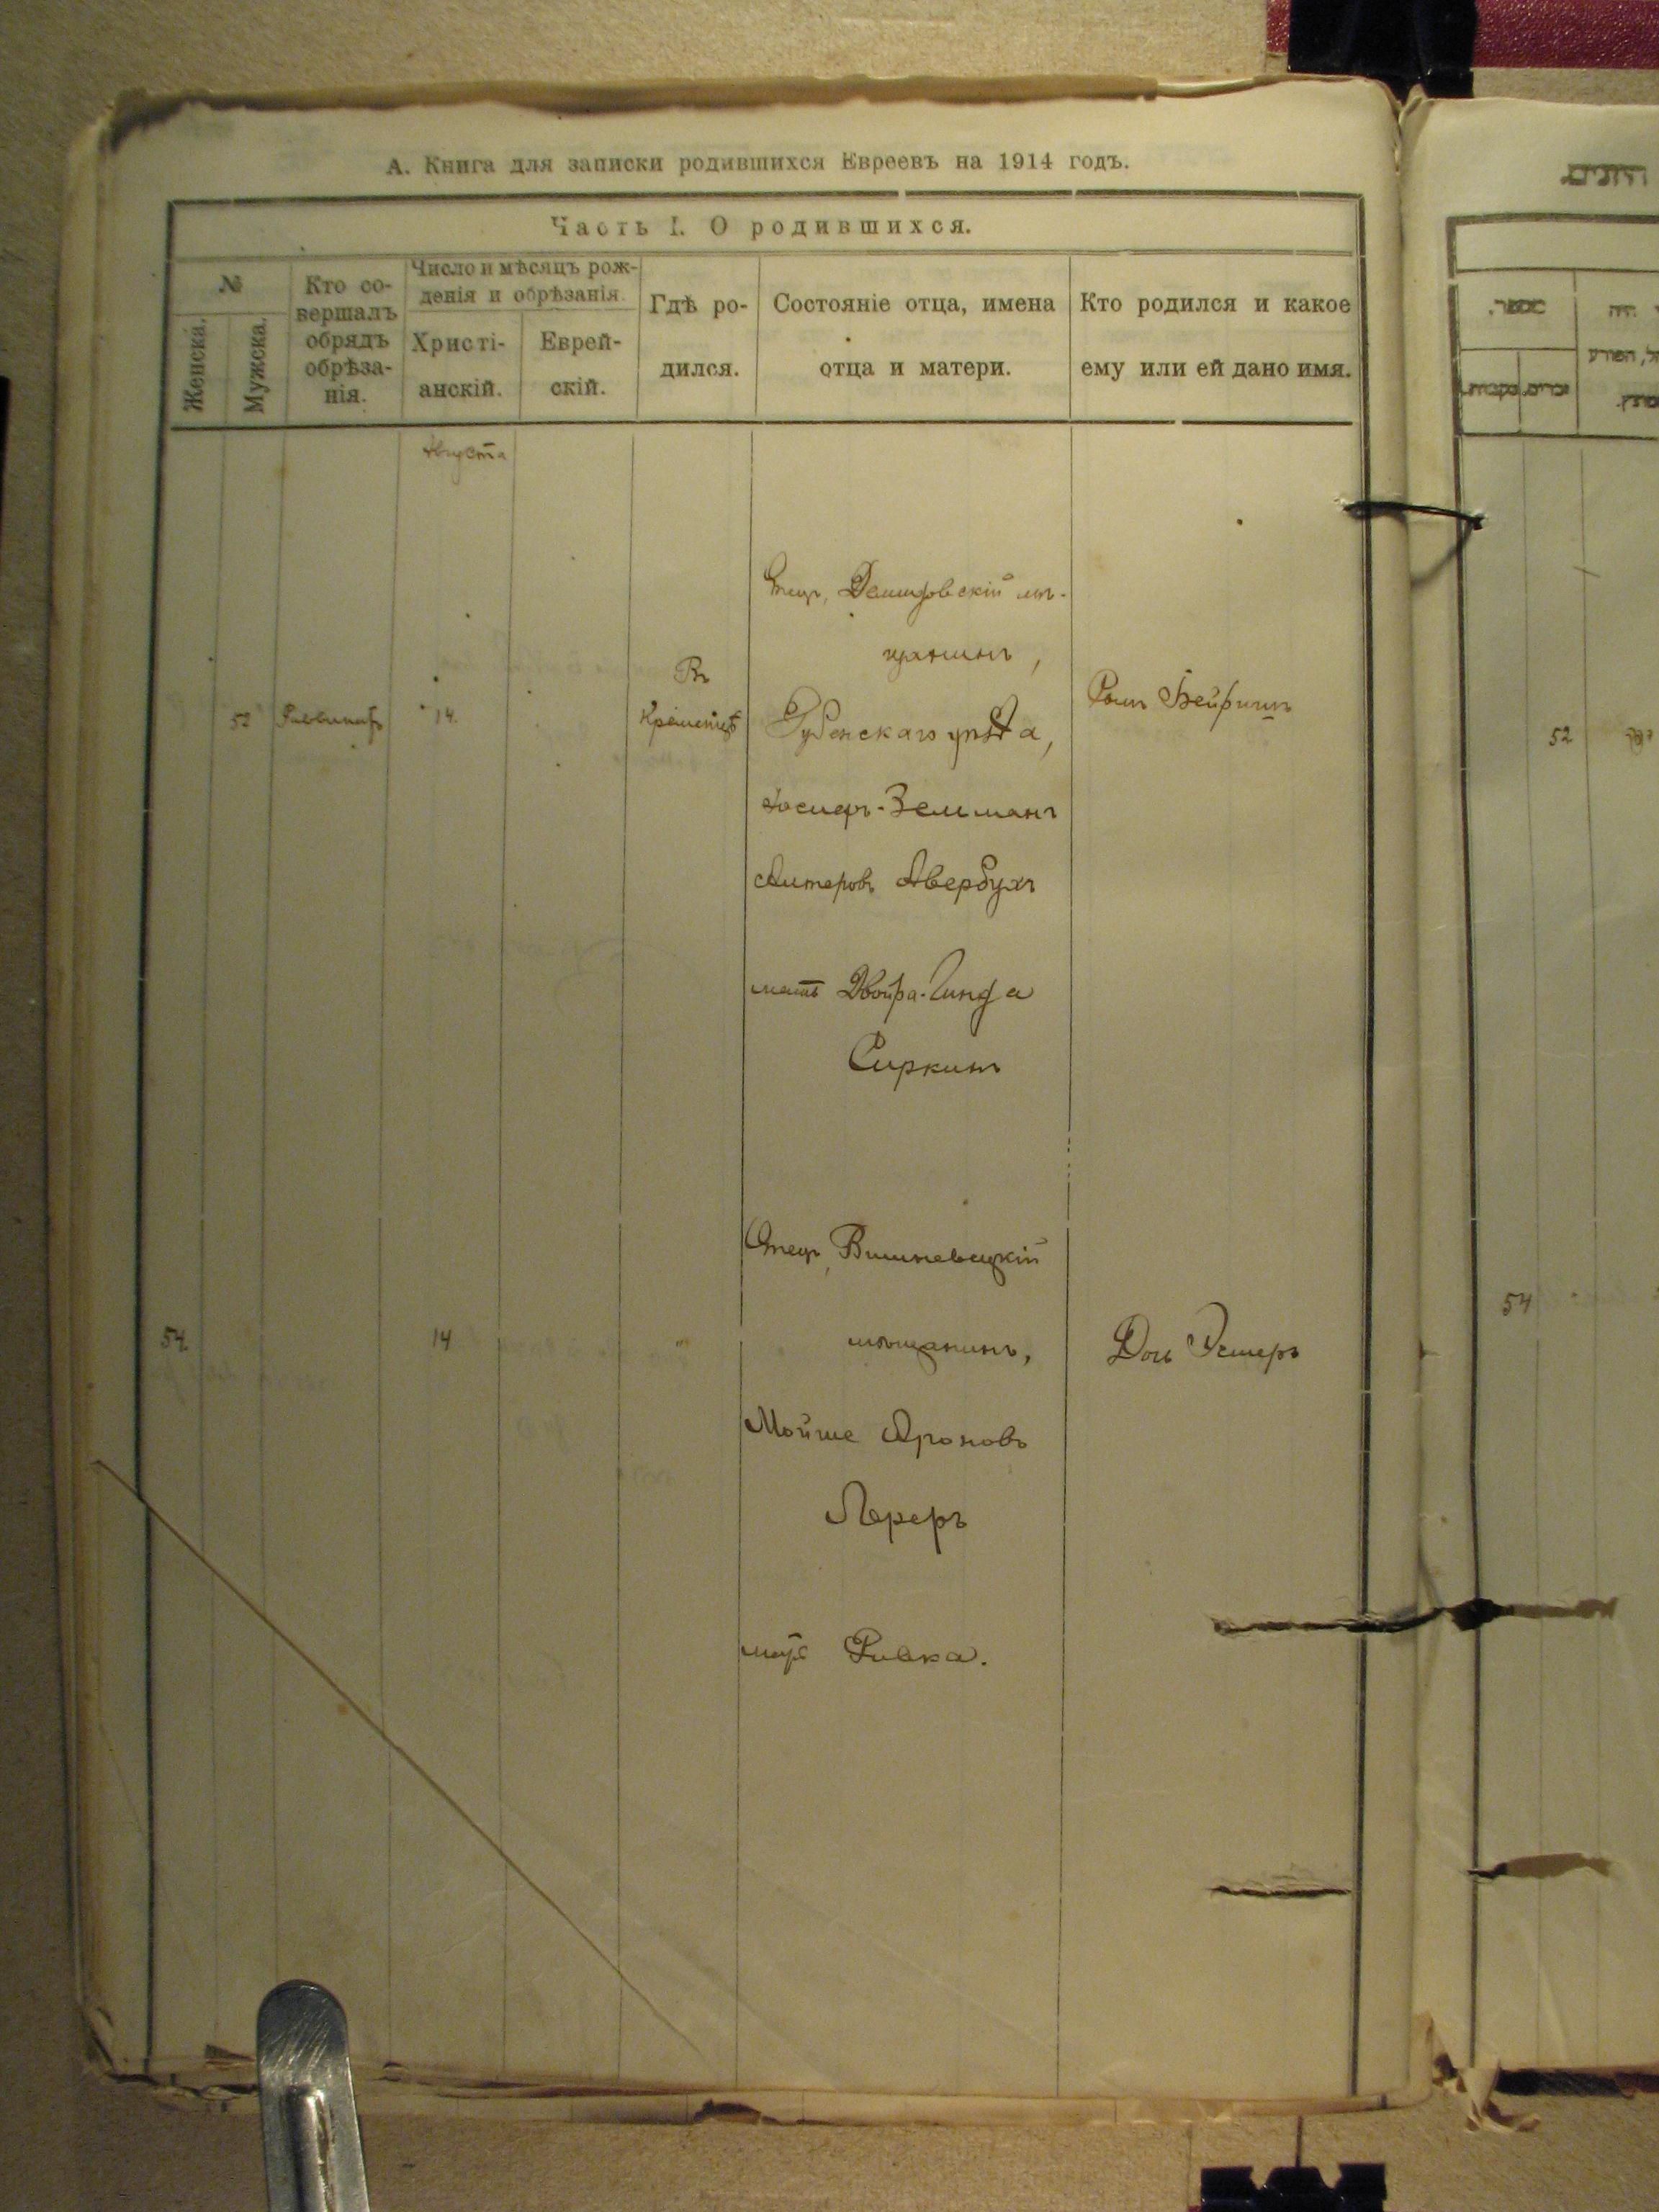 А. Книга для записки родившихся Евреевъ на 1914 годъ.
Часть I. О родившихся.
№
Женска.
Мужска.
Кто со-
вершалъ
обрядъ
обрѣза-
нія.
Число и мѣсяцъ рож-
денія и обрѣзанія.
Христі-
анскій.
Еврей-
скій.
Гдѣ ро-
дился.
Состояніе отца, имена
отца и матери.
Кто родился и какое
ему или ей дано имя.
Августа
52
14.
Въ
Кременцѣ
Отецъ, Демидовскій мѣ-
щанинъ,
Дубенскаго уѣзда,
Іосифъ-Зельманъ
Алтеровъ Авербухъ
мать Двойра-Гинда
Сиркинъ
Сынъ
54
14
"
Отецъ, Вишневецкій
мѣщанинъ,
Мойше Ароновъ
Лереръ
мать Ривка.
Дочь Эстеръ
52
54